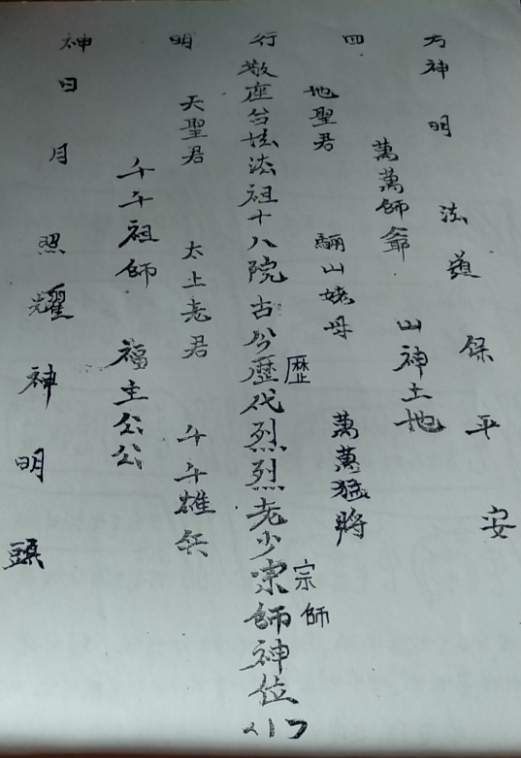 方神明法道保平安
萬萬師爺 山神土地
四 地聖君 驪山姥母 萬萬猛將
歷 宗師
行敬座台法法祖十八院古今歷代烈烈老少宗師神位
明 天聖君 太上老君 千千雄兵
千千祖師 福主公公
神日月照耀神明顯